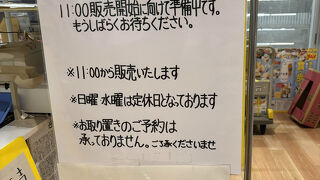 11:00販売開始に向けて準備中です。
もうしばらくお待ちください。
※11:00から販売いたします
※日曜 水曜は定休日となっております
※お取り置きのご予約は
承っておりません。ご了承くださいませ